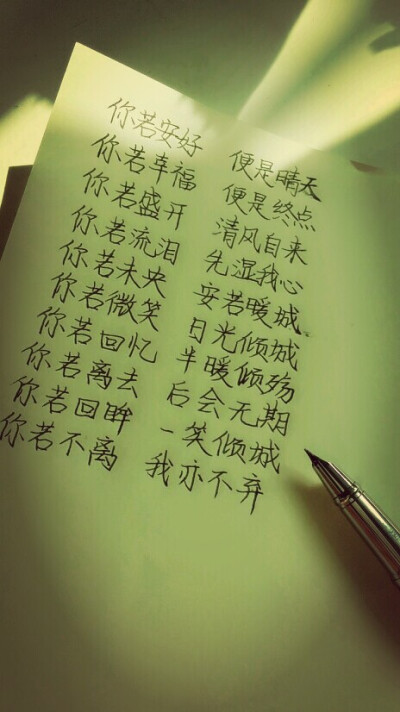 你若安好 便是晴天
你若幸福 便是终点
你若盛开 清风自来
你若流泪 先湿我心
你若未央 安若暖城
你若微笑 日光倾城
你若回忆 半暖倾殇
你若离去 后会无期
你若回眸 一笑倾城
你若不离 我亦不弃